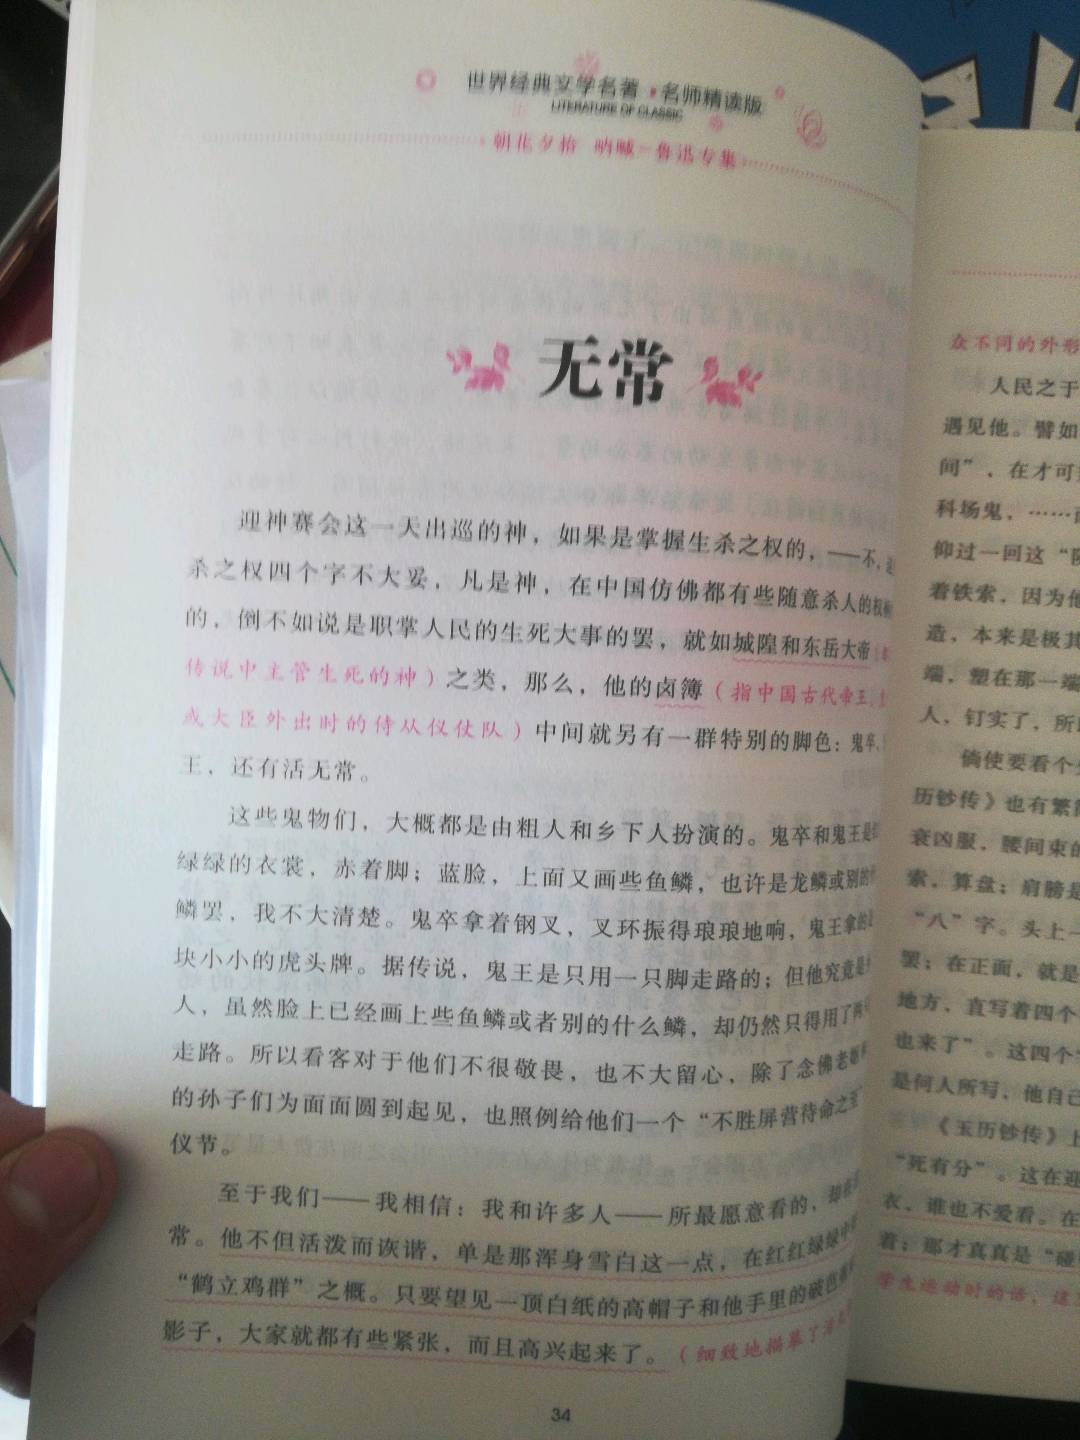 世界经典文学名著·名师精读版
LITERATURE OF CLASSIC
朝花夕拾 呐喊—鲁迅专集
无常
迎神赛会这一天出巡的神，如果是掌握生杀之权的，——不，
杀之权四个字不大妥，凡是神，在中国仿佛都有些随意杀人的权
的，倒不如说是职掌人民的生死大事的罢，就如城隍和东岳大帝（
传说中主管生死的神）之类，那么，他的卤簿（指中国古代帝王、
或大臣外出时的侍从仪仗队）中间就另有一群特别的脚色：鬼卒、
王，还有活无常。
这些鬼物们，大概都是由粗人和乡下人扮演的。鬼卒和鬼王是
绿绿的衣裳，赤着脚；蓝脸，上面又画些鱼鳞，也许是龙鳞或别的
鳞罢，我不大清楚。鬼卒拿着钢叉，叉环振得琅琅地响，鬼王拿的
块小小的虎头牌。据传说，鬼王是只用一只脚走路的；但他究竟是
人，虽然脸上已经画上些鱼鳞或者别的什么鳞，却仍然只得用了两
走路。所以看客对于他们不很敬畏，也不大留心，除了念佛老
的孙子们为面面圆到起见，也照例给他们一个“不胜屏营待命之至”
仪节。
至于我们——我相信：我和许多人——所最愿意看的，却
常。他不但活泼而诙谐，单是那浑身雪白这一点，在红红绿绿中
“鹤立鸡群”之概。只要望见一顶白纸的高帽子和他手里的破
影子，大家就都有些紧张，而且高兴起来了。（细致地描摹了
34
众不同的外形
人民之于
遇见他。譬如
间”，在才可
科场鬼，……
仰过一回这“
着铁索，因为他
造，本来是极其
端，塑在那一端
人，钉实了，所
倘使要看个
历钞传》也有繁
衰凶服，腰间束的
索，算盘；肩膀是
“八”字。头上一
罢；在正面，就是
地方，直写着四个
也来了”。这四个
是何人所写，他自己
《玉历钞传》上
“死有分”。这在迎
衣，谁也不爱看。在
着；那才真真是“碰
学生运动时的话，这